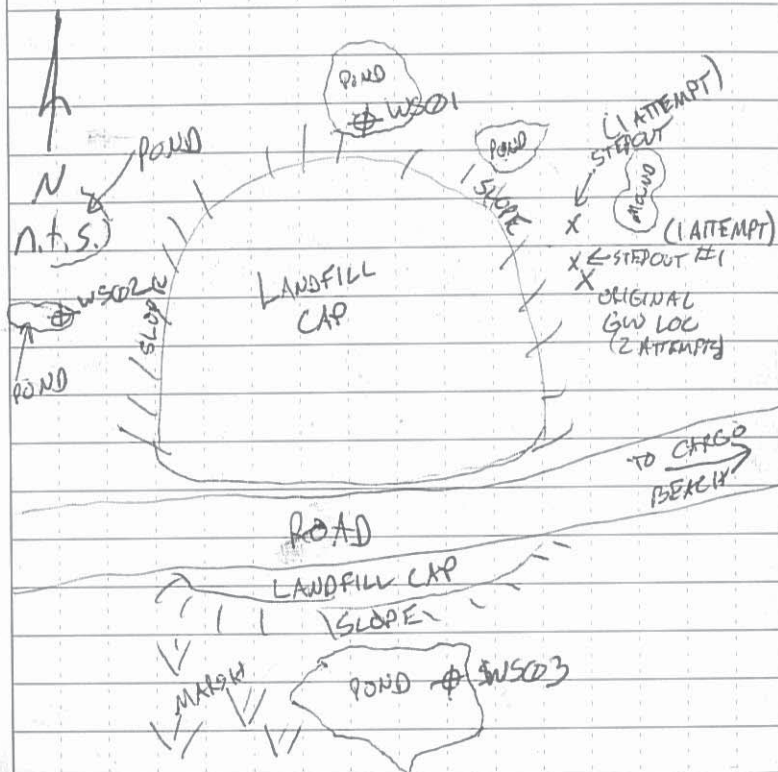 POND
WS01
POND
N
n.t.s.
POND
(1 ATTEMPT)
STEPOUT
MOUND
SLOPE
X
(1 ATTEMPT)
X ← STEPOUT #1
X
ORIGINAL
GW LOC
(2 ATTEMPTS)
WS02
SLOPE
LANDFILL
CAP
POND
TO CARGO
BEACH
ROAD
LANDFILL CAP
SLOPE
MARSH
POND
WS03